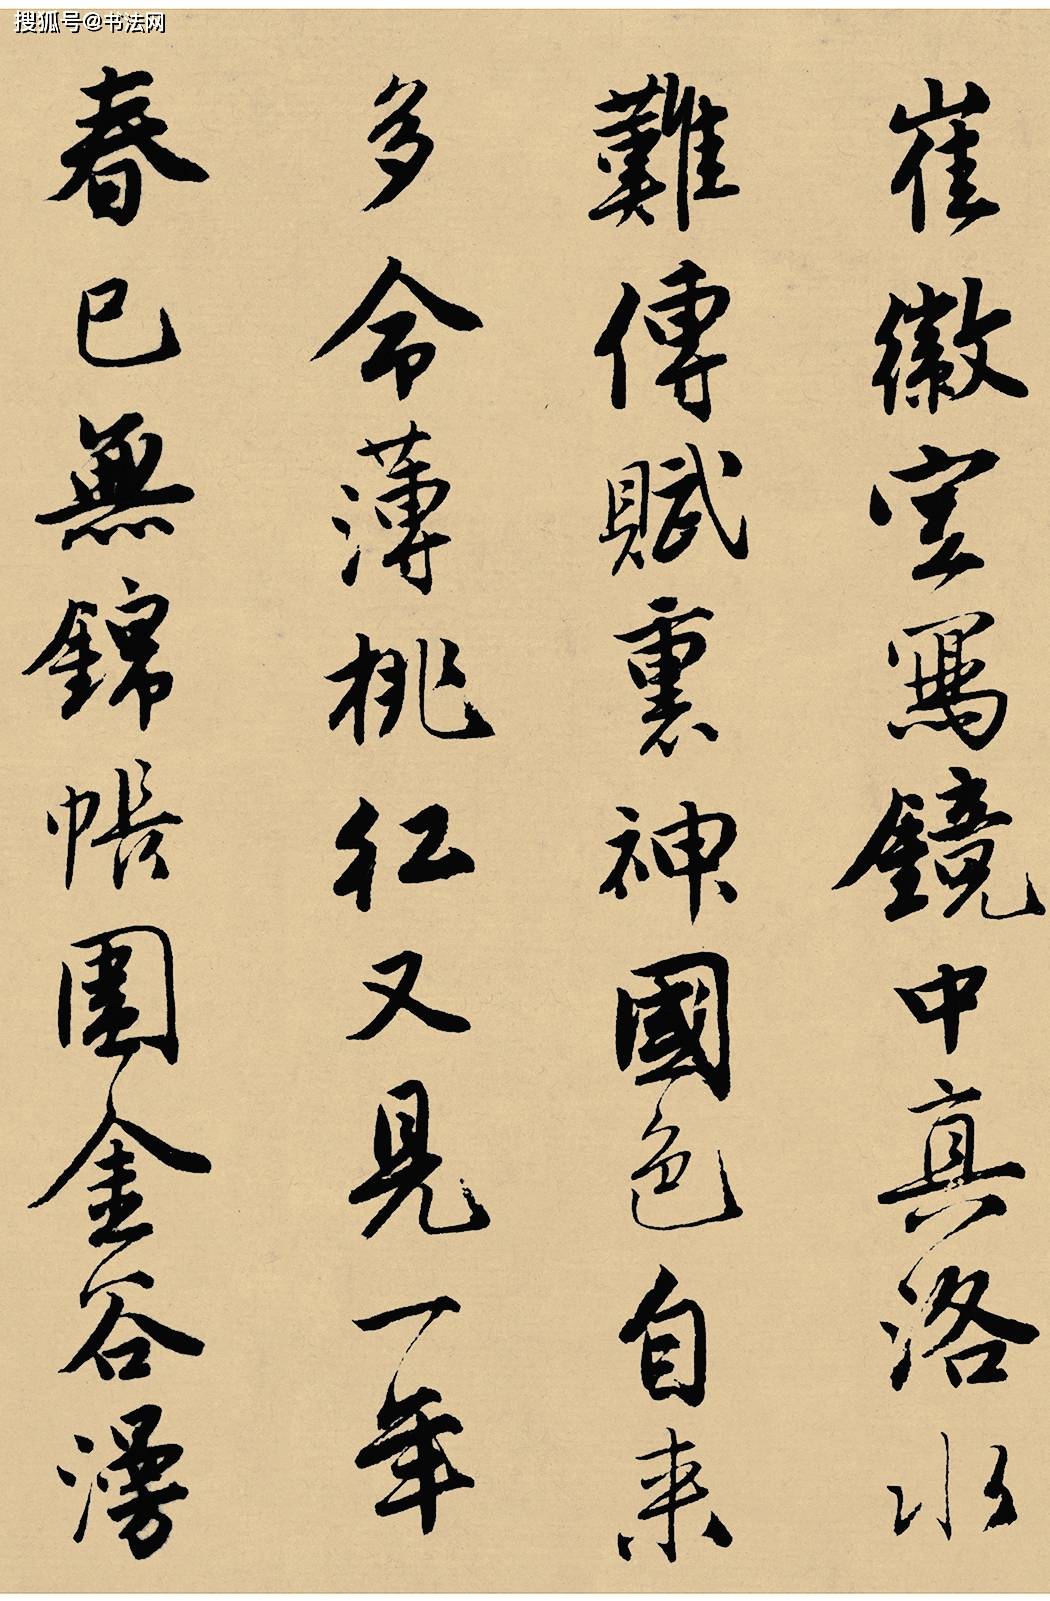 搜狐号@书法网
崔徽空寫鏡中真洛水
難傳賦裏神國色自來
多命薄桃紅又見一年
春已無錦帳圍金谷漫